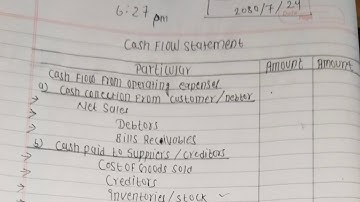 6:27 pm
2080/7/24
Cash Flow Statement
Particular Amount Amount
Cash Flow From operating expenses
a) Cash conection From customer/Debtor
→ Net Sales
→ Debtors
→ Bills Receivables
b) Cash paid to Suppliers/creditors
→ Cost of Goods Sold
→ Creditors
→ Inventories/stock